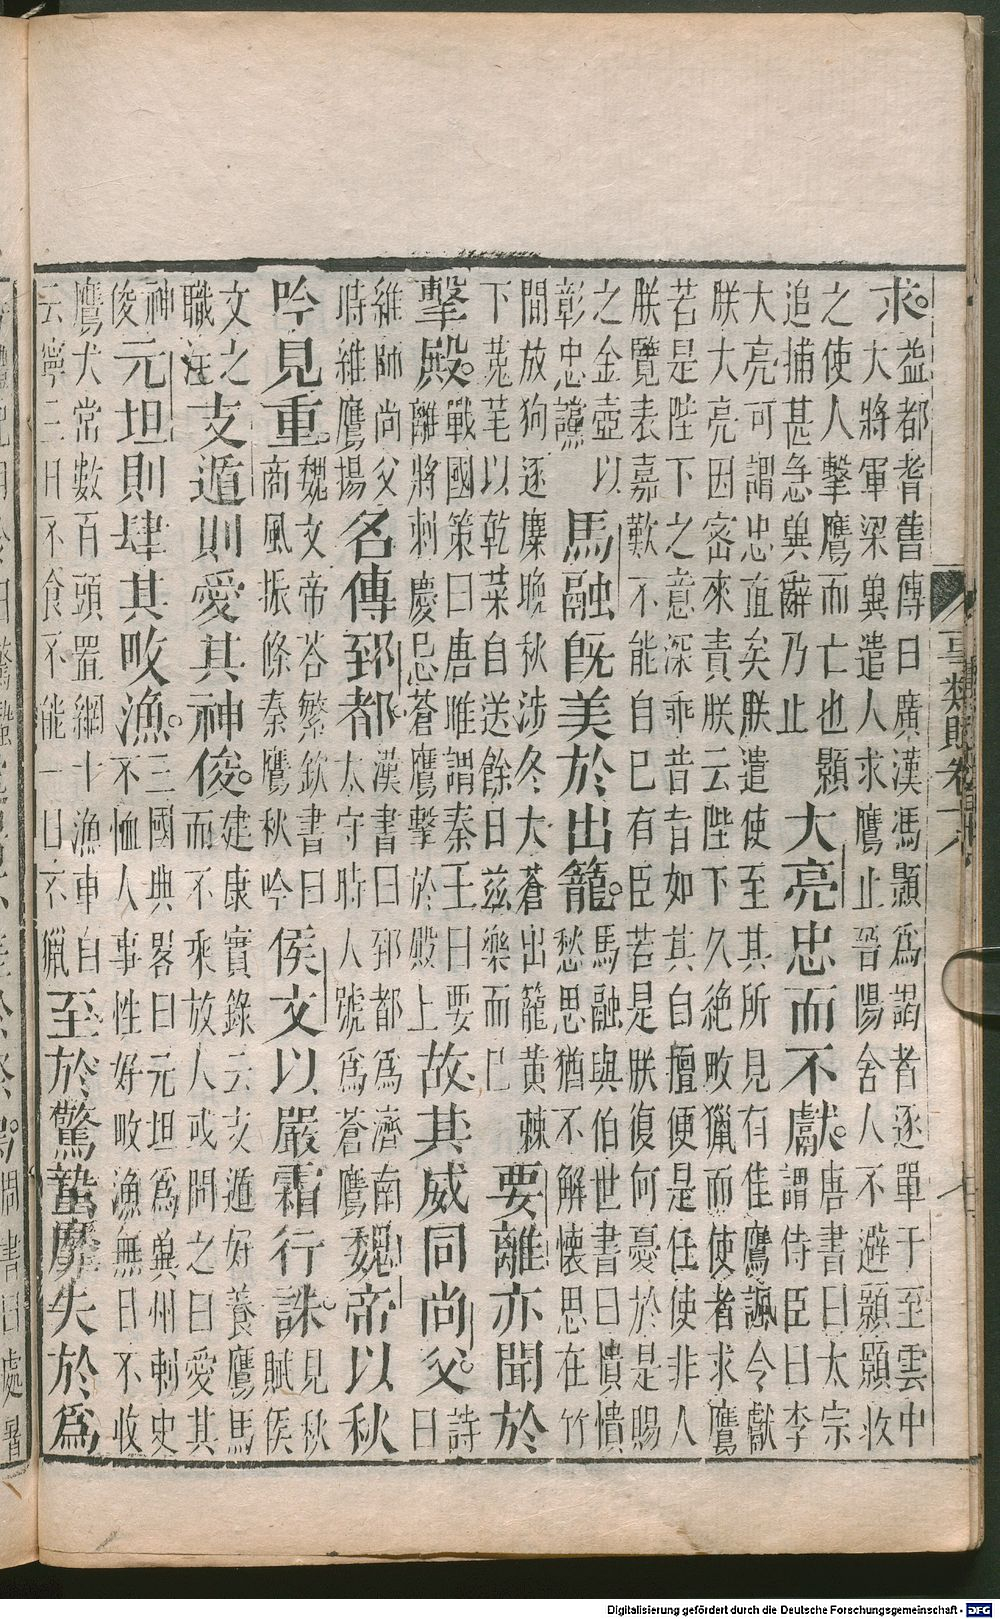 求。益都耆舊傳曰廣漢馮顥爲謁者逐單于至雲中
大將軍梁冀遣人求鷹止晉陽舍人不避顥顥收
之使人擊鷹而亡也顥
追捕甚急與辭乃止
大亮忠而不獻。唐書曰太宗
謂侍臣曰李
大亮可謂忠直矣朕遣使至其所見有佳鷹諷令獻
朕大亮因密來責朕云陛下久絶畋獵而使者求鷹
若是陛下之意深乖昔㫖如其自擅便是任使非人
朕覽表嘉歎不能自已有臣若是朕復何憂於是賜
之金壺以
彰忠讜
馬融旣美於出籠。馬融與伯世書曰憒憒
愁思猶不解懷思在竹
間放狗逐麋晚秋涉冬大蒼出籠黃棘
下莵芼以乾菜自送餘日兹樂而已
要離亦聞於
擊殿。戰國策曰唐雎謂秦王曰要
離將刺慶忌蒼鷹擊於殿上
故其威同尚父。詩
曰
維師尚父
時維鷹揚
名傳郅都。漢書曰郅都爲濟南
太守時人號爲蒼鷹
魏帝以秋
吟見重。魏文帝荅繁欽書曰
商風振條秦鷹秋吟
侯文以嚴霜行誅。見秋
賦侯
文之
職注
支遁則愛其神俊。建康實錄云支遁好養鷹馬
而不乘放人或問之曰愛其
神
俊
元坦則肆其畋漁。三國典畧曰元坦爲冀州刺史
不恤人事性好畋漁無日不收
鷹犬常數百頭置網十漁車自
云寧三日不食不能一日不獵
至於驚蟄靡失於爲
事類賦卷十八
七
Digitalisierung gefördert durch die Deutsche Forschungsgemeinschaft - DFG